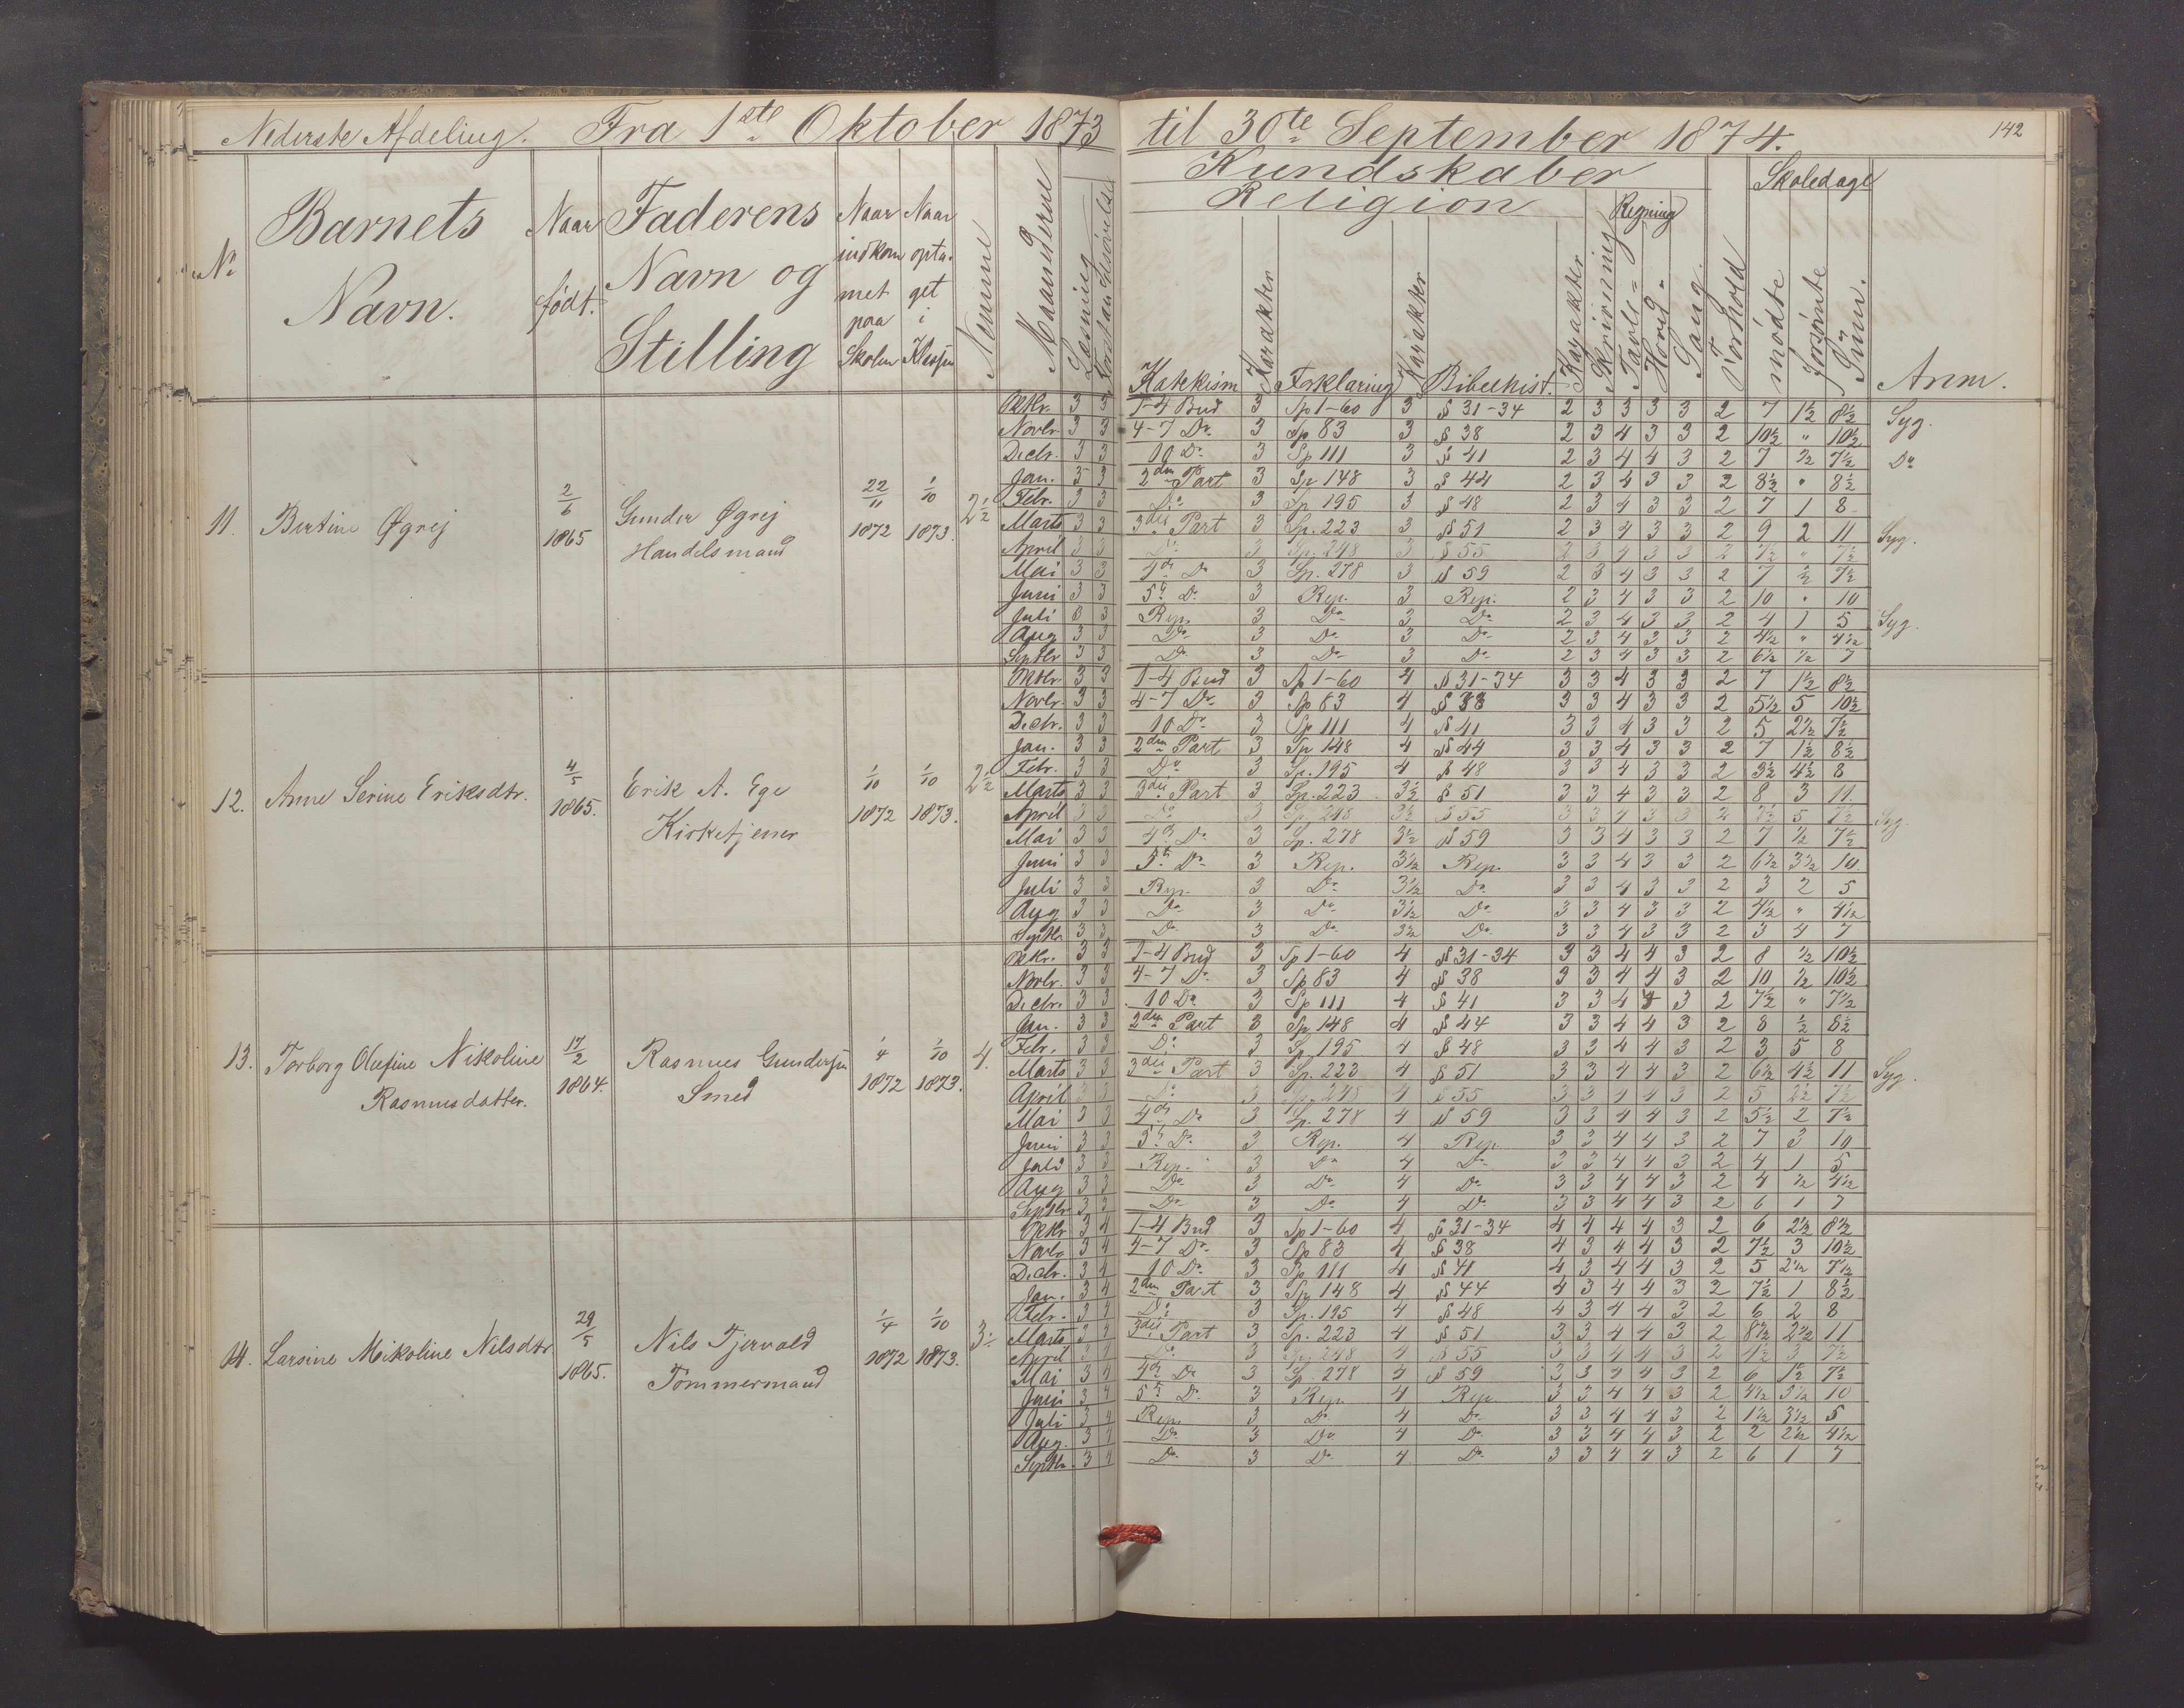 Nederste Afdeling. Fra 1ste Oktober 1873 til 30te September 1874. 142
Kundskaber Skoledage
Religion Regning
No Barnets Navn. Naar født. Faderens Navn og Stilling Naar indkommet paa Skolen Naar optaget i Klassen Nemme Maanederne Læsning Forstandsøvelse Katekism Karakter Forklaring Karakter Bibelhist. Karakter Skrivning Tavle- Hoved- Sang. Forhold mødte forsømte Sum. Anm.
11. Bertine Øgrej 2/6 1865 Gunder Øgrej Handelsmand 22/11 1872 1/10 1873. 2 1/2
Oktbr. 3 3 1-4 Bud 3 Sp 1-60 3 § 31-34 2 3 3 3 3 2 7 1 1/2 8 1/2 Syg.
Novbr. 3 3 4-7 Do 3 Sp 83 3 § 38 2 3 4 3 3 2 10 1/2 " 10 1/2
Decbr. 3 3 10 Do 3 Sp 111 3 § 41 2 3 4 4 3 2 7 1/2 7 1/2 Do
Jan. 3 3 2den Part 3 Sp 148 3 § 44 2 3 4 3 3 2 8 1/2 " 8 1/2
Febr. 3 3 Do 3 Sp 195 3 § 48 2 3 4 3 3 2 7 1 8
Marts 3 3 3die Part 3 Sp. 223 3 § 51 2 3 4 3 3 2 9 2 11 Syg.
April 3 3 Do 3 Sp. 248 3 § 55 2 3 4 3 3 2 7 1/2 " 7 1/2
Mai 3 3 4de Do 3 Sp. 278 3 § 59 2 3 4 3 3 2 7 1/2 7 1/2
Juni 3 3 5te Do 3 Rep. 3 Rep. 2 3 4 3 3 2 10 " 10
Juli 3 3 Rep. 3 Do 3 Do 2 3 4 3 3 2 4 1 5 Syg.
Aug 3 3 Do 3 Do 3 Do 2 3 4 3 3 2 4 1/2 " 4 1/2
Septbr 3 3 Do 3 Do 3 Do 2 3 4 3 3 2 6 1/2 1/2 7
12. Anne Serine Eriksdtr. 4/5 1865. Erik A. Ege Kirketjener 1/10 1872 1/10 1873. 2 1/2
Oktbr. 3 3 1-4 Bud 3 Sp 1-60 4 § 31-34 3 3 4 3 3 2 7 1 1/2 8 1/2
Novbr. 3 3 4-7 Do 3 Sp 83 4 § 38 3 3 4 3 3 2 5 1/2 5 10 1/2
Decbr. 3 3 10 Do 3 Sp 111 4 § 41 3 3 4 3 3 2 5 2 1/2 7 1/2
Jan. 3 3 2den Part 3 Sp 148 4 § 44 3 3 4 3 3 2 7 1 1/2 8 1/2
Febr. 3 3 Do 3 Sp. 195 4 § 48 3 3 4 3 3 2 3 1/2 4 1/2 8
Marts 3 3 3die Part 3 Sp. 223 3 1/2 § 51 3 3 4 3 3 2 8 3 11
April 3 3 Do 3 Sp 248 3 1/2 § 55 3 3 4 3 3 2 2 1/2 5 7 1/2 Syg.
Mai 3 3 4de Do 3 Sp. 278 3 1/2 § 59 3 3 4 3 3 2 7 1/2 7 1/2
Juni 3 3 5te Do 3 Rep. 3 1/2 Rep. 3 3 4 3 3 2 6 1/2 3 1/2 10
Juli 3 3 Rep. 3 Do 3 1/2 Do 3 3 4 3 3 2 3 2 5
Aug 3 3 Do 3 Do 3 1/2 Do 3 3 4 3 3 2 4 1/2 " 4 1/2
Septbr 3 3 Do 3 Do 3 1/2 Do 3 3 4 3 3 2 3 4 7
13. Torborg Olufine Nikoline Rasmusdatter. 17/2 1864. Rasmus Gundersen Smed 1/4 1872 1/10 1873. 4.
Oktbr. 3 3 1-4 Bud 3 Sp 1-60 4 § 31-34 3 3 4 4 3 2 8 1/2 10 1/2
Novbr. 3 3 4-7 Do 3 Sp 83 4 § 38 3 3 4 4 3 2 10 1/2 10 1/2
Decbr. 3 3 10 Do 3 Sp 111 4 § 41 3 3 4 4 3 2 7 1/2 " 7 1/2
Jan. 3 3 2den Part 3 Sp 148 4 § 44 3 3 4 4 3 2 8 1/2 8 1/2
Febr. 3 3 Do 3 Sp 195 4 § 48 3 3 4 4 3 2 3 5 8
Marts 3 3 3die Part 3 Sp. 223 4 § 51 3 3 4 4 3 2 6 1/2 4 1/2 11 Syg.
April 3 3 Do 3 Sp. 248 4 § 55 3 3 4 4 3 2 5 2 1/2 7 1/2
Mai 3 3 4de Do 3 Sp. 278 4 § 59 3 3 4 4 3 2 5 1/2 2 7 1/2
Juni 3 3 5te Do 3 Rep. 4 Rep. 3 3 4 4 3 2 7 3 10
Juli 3 3 Rep. 3 Do 4 Do 3 3 4 4 3 2 4 1 5
Aug 3 3 Do 3 Do 4 Do 3 3 4 4 3 2 4 1/2 4 1/2
Septbr 3 3 Do 3 Do 4 Do 3 3 4 4 3 2 6 1 7
14. Larsine Mikoline Nilsdtr 29/5 1865. Nils Tjervald Tømmermand 1/4 1872 1/10 1873. 3
Oktbr 3 4 1-4 Bud 3 Sp 1-60 4 § 31-34 4 4 4 4 3 2 6 2 1/2 8 1/2
Novbr 3 4 4-7 Do 3 Sp 83 4 § 38 4 3 4 4 3 2 7 1/2 3 10 1/2
Decbr. 3 4 10 Do 3 Sp 111 4 § 41 4 3 4 4 3 2 5 2 1/2 7 1/2
Jan. 3 4 2den Part 3 Sp 148 4 § 44 4 3 4 4 3 2 7 1/2 1 8 1/2
Febr. 3 4 Do 3 Sp. 195 4 § 48 4 3 4 4 3 2 6 2 8
Marts 3 4 3die Part 3 Sp. 223 4 § 51 3 3 4 4 3 2 8 1/2 2 1/2 11
April 3 4 Do 3 Sp. 248 4 § 55 3 3 4 4 3 2 4 1/2 3 7 1/2
Mai 3 4 4de Do 3 Sp. 278 4 § 59 3 3 4 4 3 2 6 1 1/2 7 1/2
Juni 3 4 5te Do 3 Rep. 4 Rep. 3 3 4 4 3 2 4 1/2 3 1/2 10
Juli 3 4 Rep. 3 Do 4 Do 3 3 4 4 3 2 1 1/2 3 1/2 5
Aug. 3 4 Do 3 Do 4 Do 3 3 4 4 3 2 2 2 1/2 4 1/2
Septbr 3 4 Do 3 Do 4 Do 3 3 4 4 3 2 6 1 7